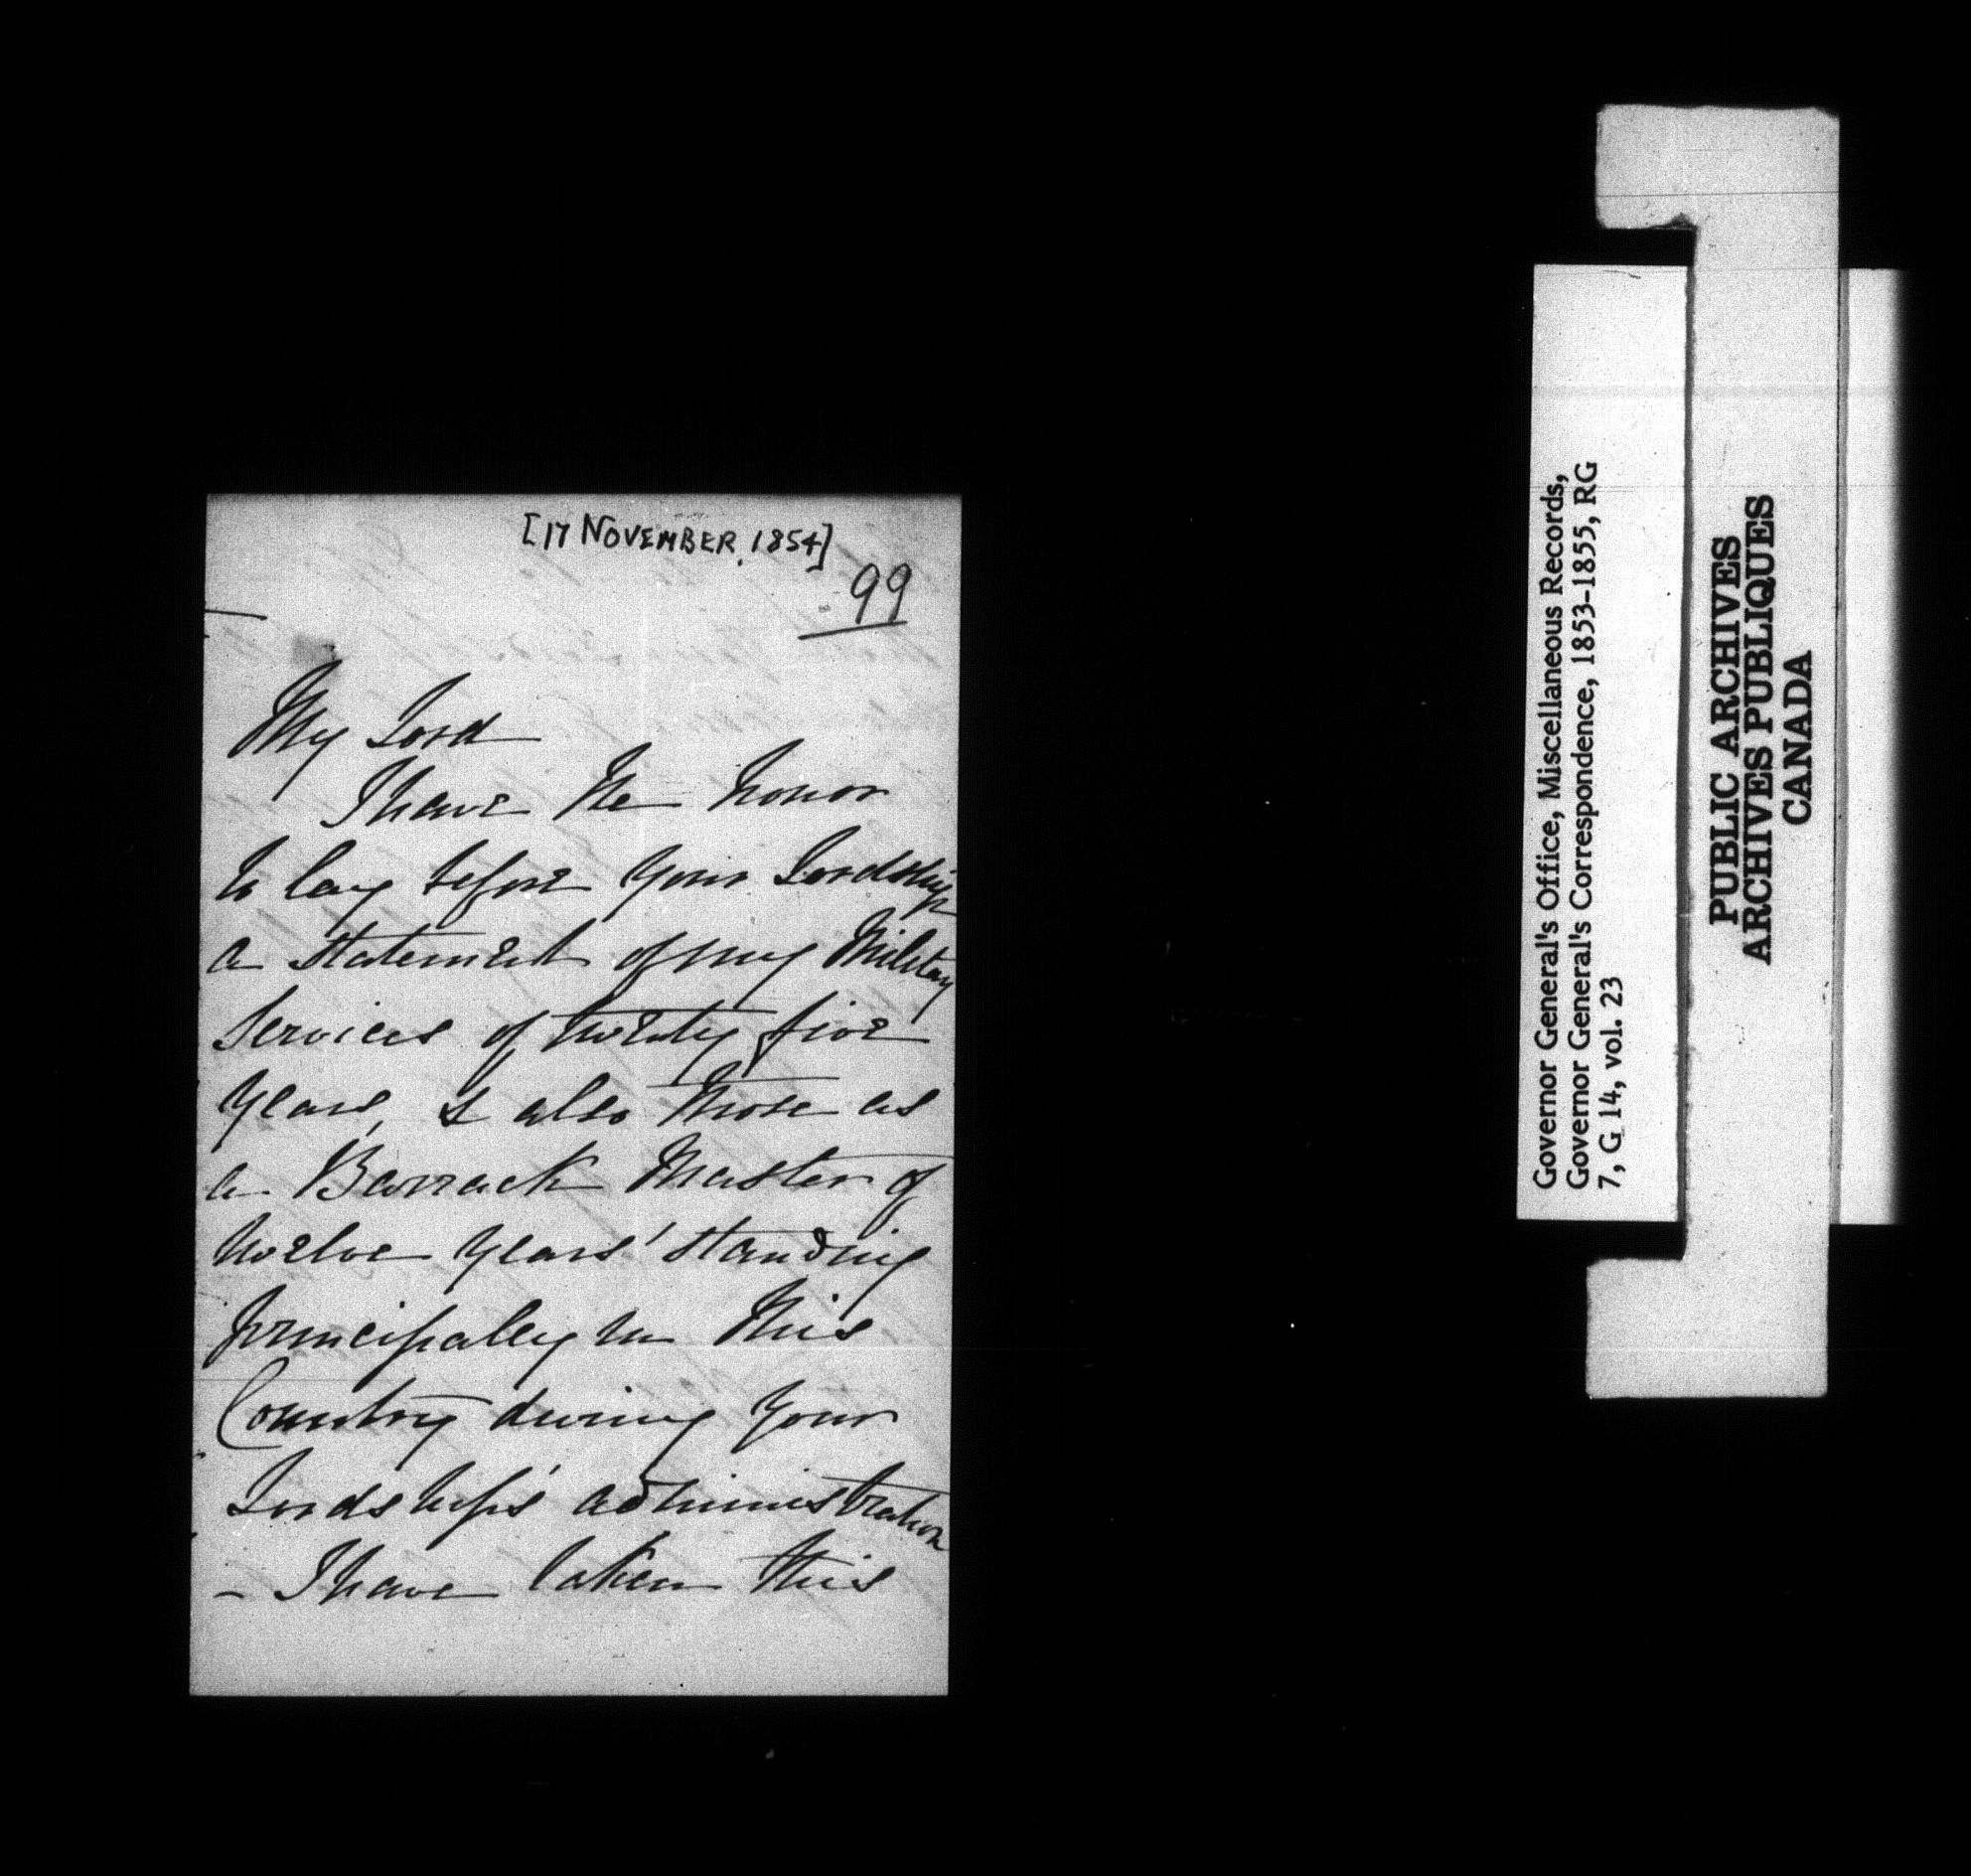 [17 NOVEMBER, 1854]
99
My Lord
I have the honor
to lay before Your Lordship
a Statement of my Military
Services of twenty five
Years, & also those as
a Barrack Master of
twelve Years' standing
principally in this
Country during Your
Lordship's administration
- I have taken this
Governor General's Office, Miscellaneous Records,
Governor General's Correspondence, 1853-1855, RG
7, G 14, vol. 23
PUBLIC ARCHIVES
ARCHIVES PUBLIQUES
CANADA